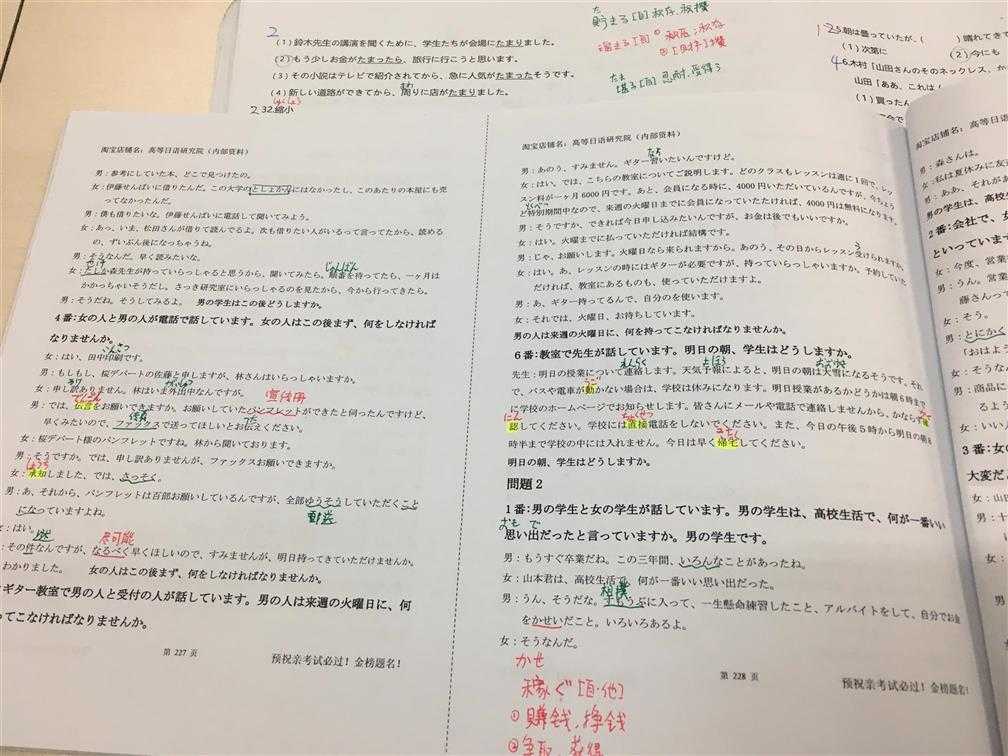 2
(1) 鈴木先生の講演を聞くために、学生たちが会場にたまりました。
(2) もう少しお金がたまったら、旅行に行こうと思います。
(3) その小説はテレビで紹介されてから、急に人気がたまったそうです。
(4) 新しい道路ができてから、周りに店がたまりました。
まわ
しゅくしょう
2 32.縮小
た
貯まる[自]
溜まる[自]
5.朝は曇っていたが、( )晴れてきて
(1) 次第に
(2) 今にも
4 6.木村「山田さんのそのネックレス、
山田「ああ、これは(
(1) 買った
淘宝店铺名:高等日语研究院(内部资料)
男:参考にしていた本、どこで見つけたの。
女:伊藤せんぱいに借りたんだ。この大学のとしょかんにはなかったし、このあたりの本屋にも売
ってなかったんだ。
男:僕も借りたいな。伊藤せんぱいに電話して聞いてみよう。
女:あっ、いま、松田さんが借りて読んでるよ。次も借りたい人がいるって言ってたから、読める
の、ずいぶん後になっちゃうね。
男:そうなんだ。早く読みたいな。
じゅんばん
女:たしか森先生が持っていらっしゃると思うから、聞いてみたら。順番を待ってたら、一ヶ月は
かかっちゃいそうだし。さっき研究室にいらっしゃるのを見たから、今から行ってきたら。
男:そうだね。そうしてみるよ。 男の学生はこの後どうしますか。
4番:女の人と男の人が電話で話しています。女の人はこの後まず、何をしなければ
なりませんか。
いんさつ
女:はい、田中印刷です。
男:もしもし、桜デパートの佐藤と申しますが、林さんはいらっしゃいますか。
わけ
がいしゅつ
女:申し訳ありません。林はいま外出中なんですが。
でんごん
宣传册
男:では、伝言をお願いできますか。お願いしていたパンフレットができたと伺ったんですけど、
传真
早くみたいので、ファックスで送ってほしいとお伝えください。
女:桜デパート様のパンフレットですね。林から聞いております。
男:そうですか。では、申し訳ありませんが、ファックスお願いできますか。
しょうち
女:承知しました、では、さっそく。
男:あ、それから、パンフレットは百部お願いしているんですが、全部ゆうそうしていただくこと
になっていますよね。
郵送
女:はい。
尽可能
:その件なんですが、なるべく早くほしいので、すみませんが、明日持ってきていただけませんか。
わかりました。 女の人はこの後まず、何をしなければなりませんか。
ギター教室で男の人と受付の人が話しています。男の人は来週の火曜日に、何
ってこなければなりませんか。
第 227 页
预祝亲考试必过!金榜题名!
淘宝店铺名:高等日语研究院(内部资料)
男:あのう、すみません。ギター習いたいんですけど。
女:はい。では、こちらの教室についてご説明します。どのクラスもレッスンは週に1回で、レッ
スン料が一ヶ月6000円です。あと、会員になる時に、4000円いただいているんですが、今ちょう
とくべつ
ど特別期間中なので、来週の火曜日までに会員になっていただければ、4000円は無料になります。
男:そうですか、できれば今日申し込みたいんですが、お金は後でもいいですか。
女:はい。火曜日までに払っていただければ結構です。
男:じゃ、お願いします。火曜日なら来られますから。あのう、その日からレッスン受けられますか。
女:はい。あ、レッスンの時にはギターが必要ですが、持っていらっしゃいますか。予約してい
ただければ、教室にあるものも、使っていただけますよ。
男:あ、ギター持ってるんで、自分のを使います。
女:それでは、火曜日、お待ちしています。
男の人は来週の火曜日に、何を持ってこなければなりませんか。
6番:教室で先生が話しています。明日の朝、学生はどうしますか。
れんらく
よほう
おおゆき
先生:明日の授業について連絡します。天気予報によると、明日の朝は大雪になるそうです。それ
うご
で、バスや電車が動かない場合は、学校は休みになります。明日授業があるかどうかは朝6時まで
に学校のホームページでお知らせします。皆さんにメールや電話で連絡しませんから、かならず確
にん
ちょくせつ
認してください。学校には直接電話をしないでください。また、今日の午後5時から明日の朝8
きたく
時半まで学校の中には入れません。今日は早く帰宅してください。
明日の朝、学生はどうしますか。
問題2
1番:男の学生と女の学生が話しています。男の学生は、高校生活で、何が一番いい
おも で
思い出だったと言っていますか。男の学生です。
男:もうすぐ卒業だね。この三年間、いろんなことがあったね。
女:山本君は、高校生活で、何が一番いい思い出だった。
相撲
男:うん、そうだな。すもうぶに入って、一生懸命練習したこと、アルバイトをして、自分でお金
をかせいだこと。いろいろあるよ。
女:そうなんだ。
かせ
稼ぐ[自·他]
①赚钱、挣钱
②争取、获得
第 228 页
预祝亲考试必过!金榜题名!
淘宝店铺名:高等
男:森さんは。
女:私は夏休みに友
男:ああ、それがあ
男の学生は、高校生
2番:会社で、女
といっています
女:今度、営業
男:うん。営業
藤さんって
女:そう。
男:とにかく
「おはよう
男:商品に
るよう
女:いい
3番:女の
大変だ